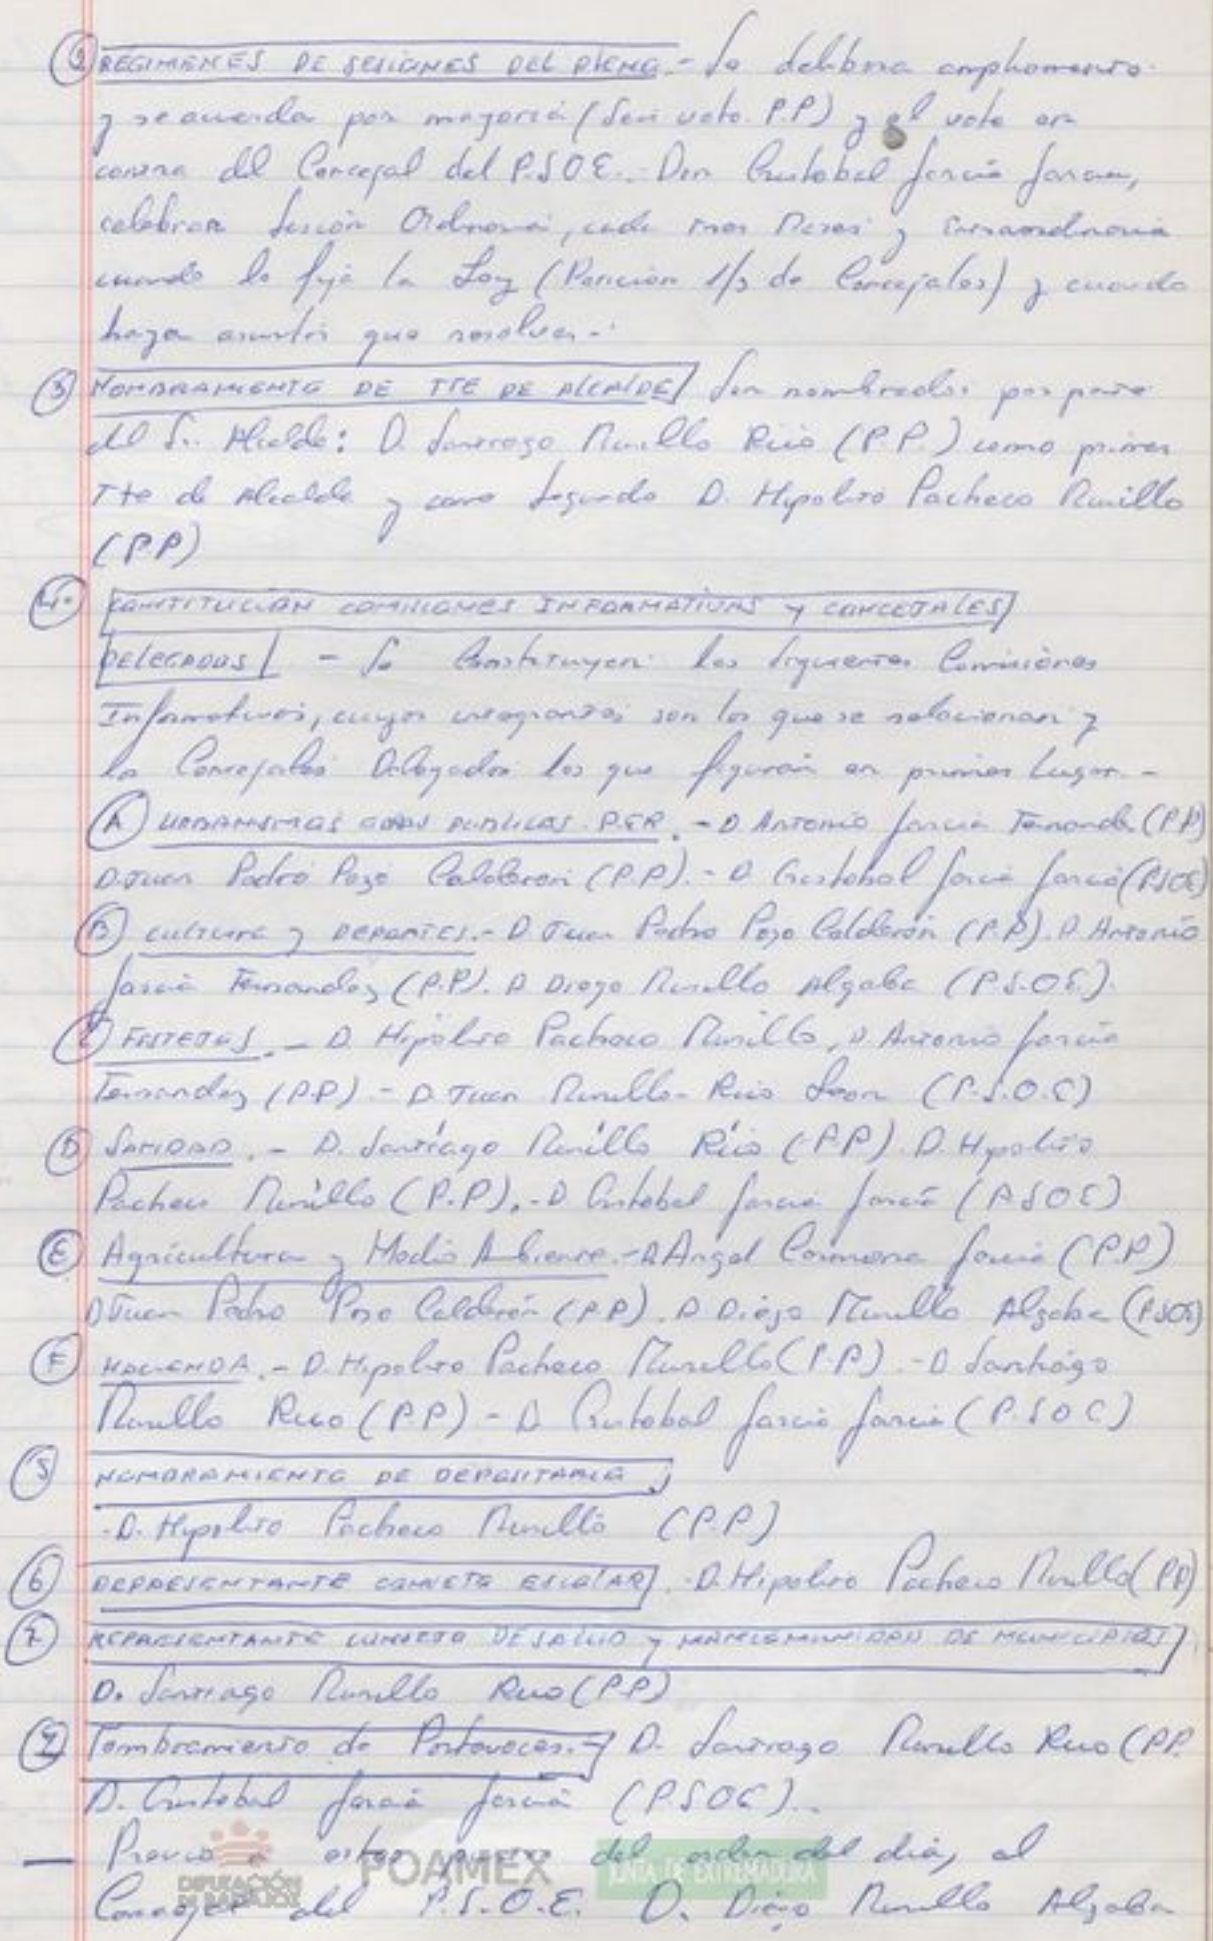 ② REGIMENES DE SESIONES DEL PLENO.- Se delibera ampliamente
y se acuerda por mayoria (Seis votos P.P) y el voto en
contra del Concejal del P.S.O.E.- Don Cristobal García García,
celebrar Sesión Ordinaria, cada tres Meses y Extraordinaria
cuando lo fija la Ley (Petición 1/3 de Concejales) y cuando
haya asuntos que resolver.-
③ NOMBRAMIENTO DE TTE DE ALCALDE/ Son nombrados por parte
del Sr. Alcalde: D. Santiago Murillo Rico (P.P.) como primer
Tte de Alcalde y como Segundo D. Hipolito Pacheco Murillo
(P.P)
④ CONSTITUCIÓN COMISIONES INFORMATIVAS Y CONCEJALES
DELEGADOS/ - Se Constituyen las siguientes Comisiones
Informativas, cuyos integrantes son los que se relacionan y
los Concejales Delegados los que figuran en primer Lugar.-
Ⓐ URBANISMO OBRAS PUBLICAS. P.E.R.- D. Antonio García Fernandez (P.P)
D. Juan Pedro Pozo Calderon (P.P).- D Cristobal García García (P.SOE)
Ⓑ CULTURA y DEPORTES.- D. Juan Pedro Pozo Calderón (P.P). D. Antonio
García Fernandez (P.P). D Diego Murillo Algaba (P.S.OE.).
Ⓒ FESTEJOS.- D. Hipólito Pacheco Murillo, D. Antonio García
Fernandez (P.P) - D. Juan Murillo-Rico (P.S.O.E)
Ⓓ SANIDAD.- D. Santiago Murillo Rico (P.P). D. Hipolito
Pacheco Murillo (P.P).- D Cristobal García García (P.SOE)
Ⓔ Agricultura y Medio Ambiente.- D. Angel Carmona García (P.P)
D Juan Pedro Pozo Calderón (P.P). D Diego Murillo Algaba (P.SOE)
Ⓕ HACIENDA.- D. Hipolito Pacheco Murillo (P.P).- D Santiago
Murillo Rico (P.P) - D Cristobal García García (P.SOE)
⑤ NOMBRAMIENTO DE DEPOSITARIO;
-D. Hipolito Pacheco Murillo (P.P)
⑥ REPRESENTANTE CONSEJO ESCOLAR/. -D. Hipolito Pacheco Murillo (PP)
⑦ REPRESENTANTE CONSEJO DE SALUD y MANCOMUNIDAD DE MUNICIPIOS/
D. Santiago Murillo Rico (P.P)
Nombramiento de Portavoces.- D. Santiago Murillo Rico (PP.
D. Cristobal García García (P.SOE).
— Previo a estos puntos del orden del dia, el
Concejal del P.S.O.E. D. Diego Murillo Algaba
DIPUTACIÓN
DE BADAJOZ
POAMEX
JUNTA DE EXTREMADURA